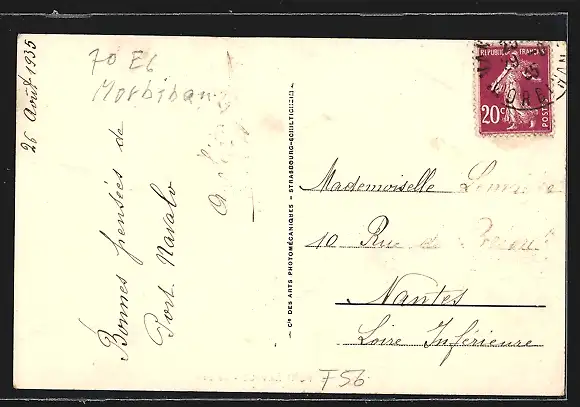 26 Août 1935
70 E6
Morbihan
Bonnes pensées de
Port Navalo
Cie DES ARTS PHOTOMÉCANIQUES - STRASBOURG-SCHILTIGHEIM -
REPUBLIQUE FRANÇAISE
20c
POSTES
MORBIHAN
Mademoiselle
10 Rue de
Nantes
Loire Inférieure
F56